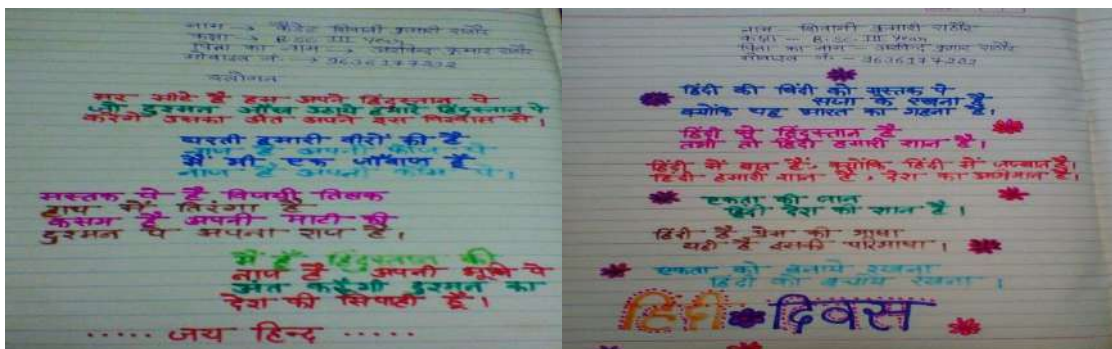 नाम → कैडेट शिवानी कुमारी राठौर
कक्षा → B.Sc. III Year
पिता का नाम → अरविन्द कुमार राठौर
मोबाइल नं. → 9636177202
स्लोगन
मर मीटे है हम अपने हिंदुस्तान पे
जो दुश्मन आँख उठाये हमारे हिंदुस्तान पे
करेंगे उसका अंत अपने इस विश्वास से।
धरती हमारी वीरों की है
नाज है अपनी फौज पे
मैं भी एक जाँबाज हूँ
नाज है अपनी कौम पे।
मस्तक पे है विजयी तिलक
हाथ में तिरंगा है
कसम है अपनी माटी की
दुश्मन पे अपना राज है।
मैं हूँ हिंदुस्तान की
नाज है अपनी भूमि पे
अंत करूँगी दुश्मन का
देश की सिपाही हूँ।
..... जय हिन्द .....
नाम - शिवानी कुमारी राठौर
कक्षा - B.Sc. III Year
पिता का नाम - अरविन्द कुमार राठौर
मोबाइल नं. - 9636177202
हिंदी की बिंदी को मस्तक पे
सजा के रखना है
क्योंकि यह भारत का गहना है।
हिंदी से हिंदुस्तान है
तभी तो हिंदी हमारी शान है।
हिंदी में बात है, क्योंकि हिंदी में जज्बात है।
हिंदी हमारी शान है, देश का अभिमान है।
एकता की जान
हिंदी देश की शान है।
हिंदी है प्रेम की भाषा
यही है इसकी परिभाषा।
एकता को बनाये रखना
हिंदी को बचाये रखना।
हिंदी दिवस